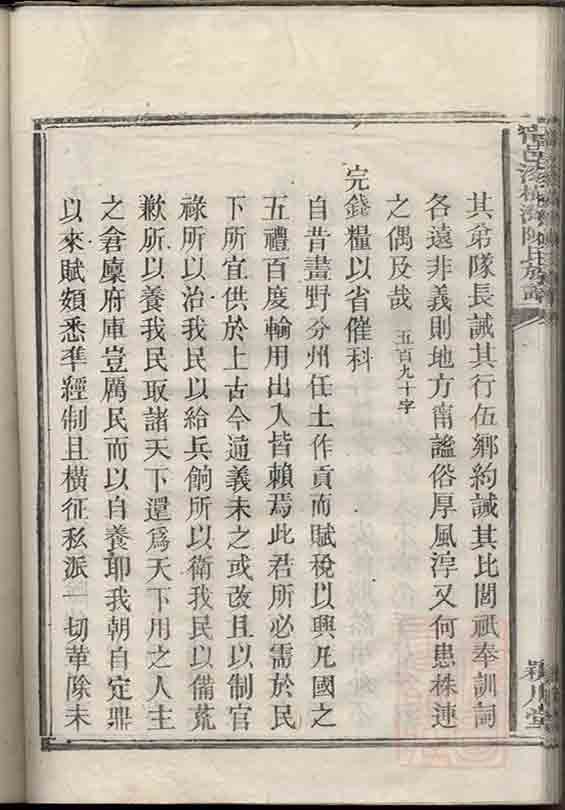 其弟隊長誡其行伍鄉約誡其比閭祇奉訓詞
各遠非義則地方甯謐俗厚風淳又何患株連
之偶及哉 五百九十字
完錢糧以省催科
自昔畫野分州任土作貢而賦稅以興凡國之
五禮百度輸用出入皆賴焉此君所必需於民
下所宜供於上古今通義未之或改且以制官
祿所以治我民以給兵餉所以衛我民以備荒
歉所以養我民取諸天下還爲天下用之人主
之倉廩府庫豈厲民而以自養耶我朝自定鼎
以來賦額悉準經制且橫征私派一切革除未
陳氏族譜
潁川堂